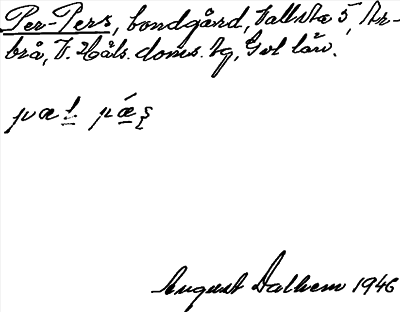 Per-Pers, bondgård, Vallsta 5, Ar-
brå, V. Häls. doms. tg, Gvl län.
August Dalhem 1946